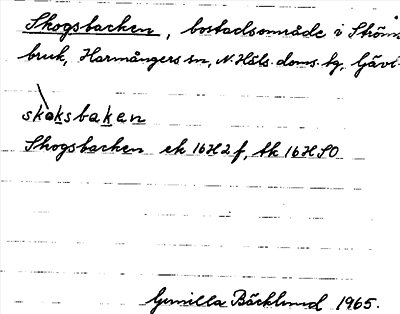 Skogsbacken, bostadsområde i Ströms
bruk, Harmångers sn, N. Häls. doms. hg, Gävl.
skoksbaken
Skogsbacken ek 16H2f, tk 16H SO
Gunilla Bäcklund 1965.